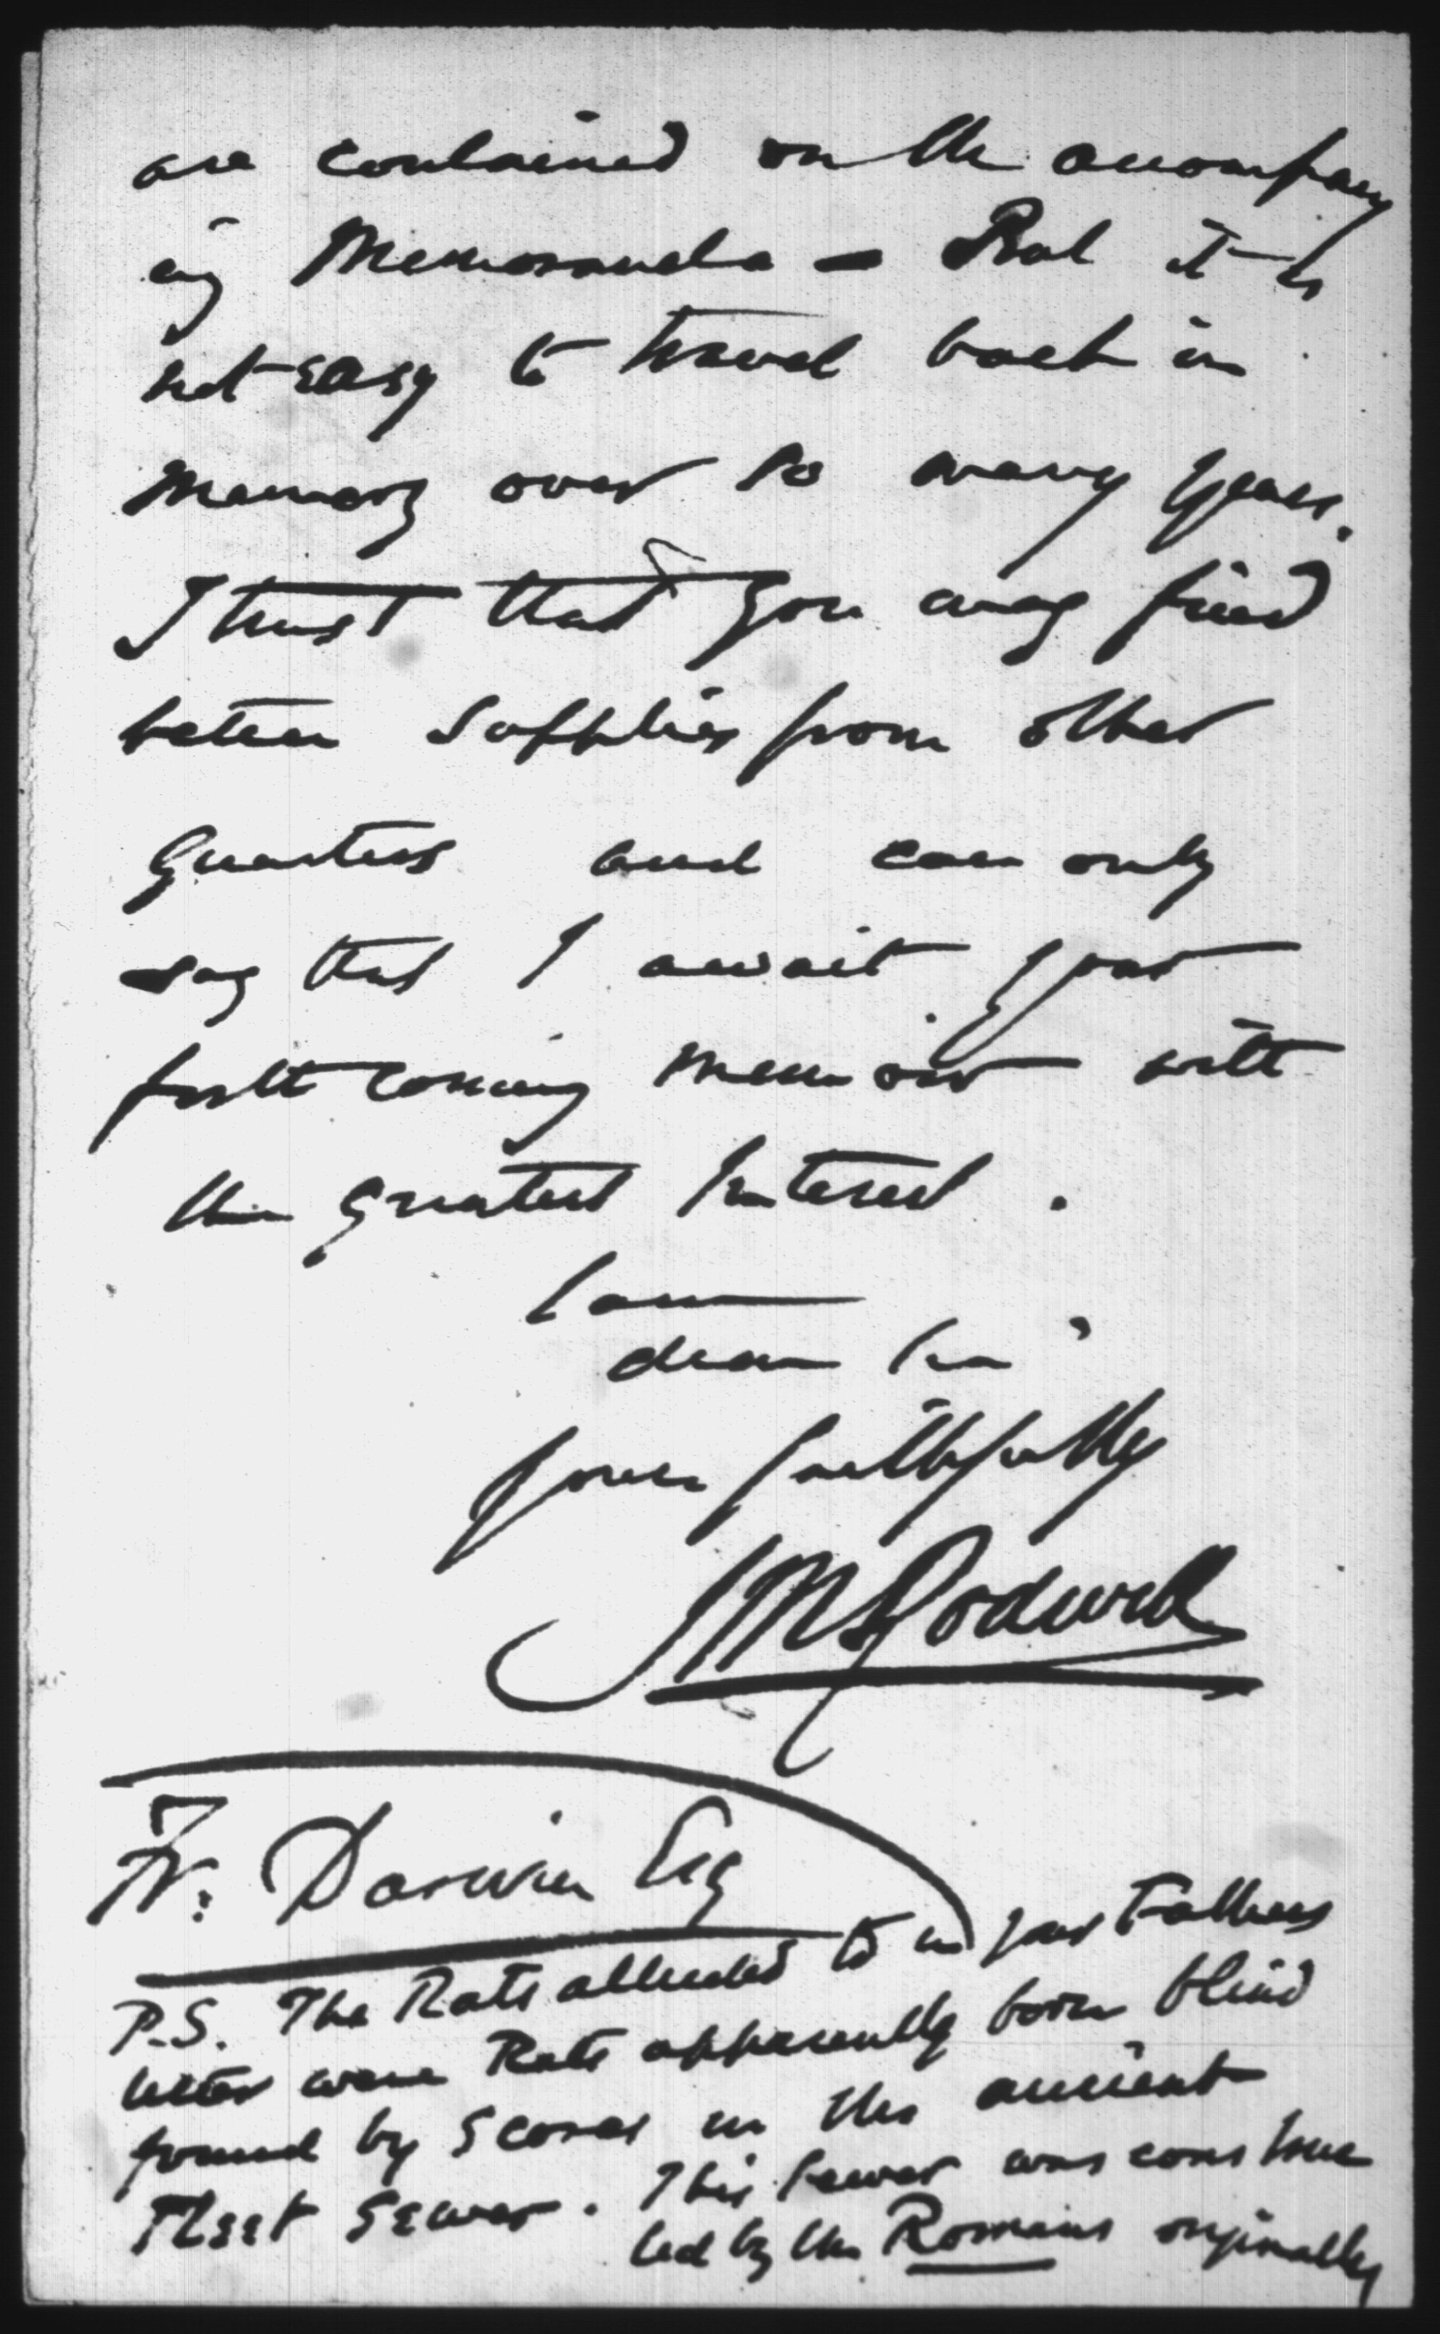 are contained on the accompany
ing Memoranda – But it is
not easy to travel back in
memory over so many years.
I trust that you may find
better supplies from other
Quarters and can only
say that I await your
forthcoming memoir with
the greatest Interest.
I am
dear Sir
yours faithfully
JM Rodwell
Fr. Darwin Esq
P.S. The Rats alluded to in your Fathers
letter were Rats apparently born blind
found by Scores in the ancient
Fleet Sewer. This Sewer was construc
ted by the Romans originally